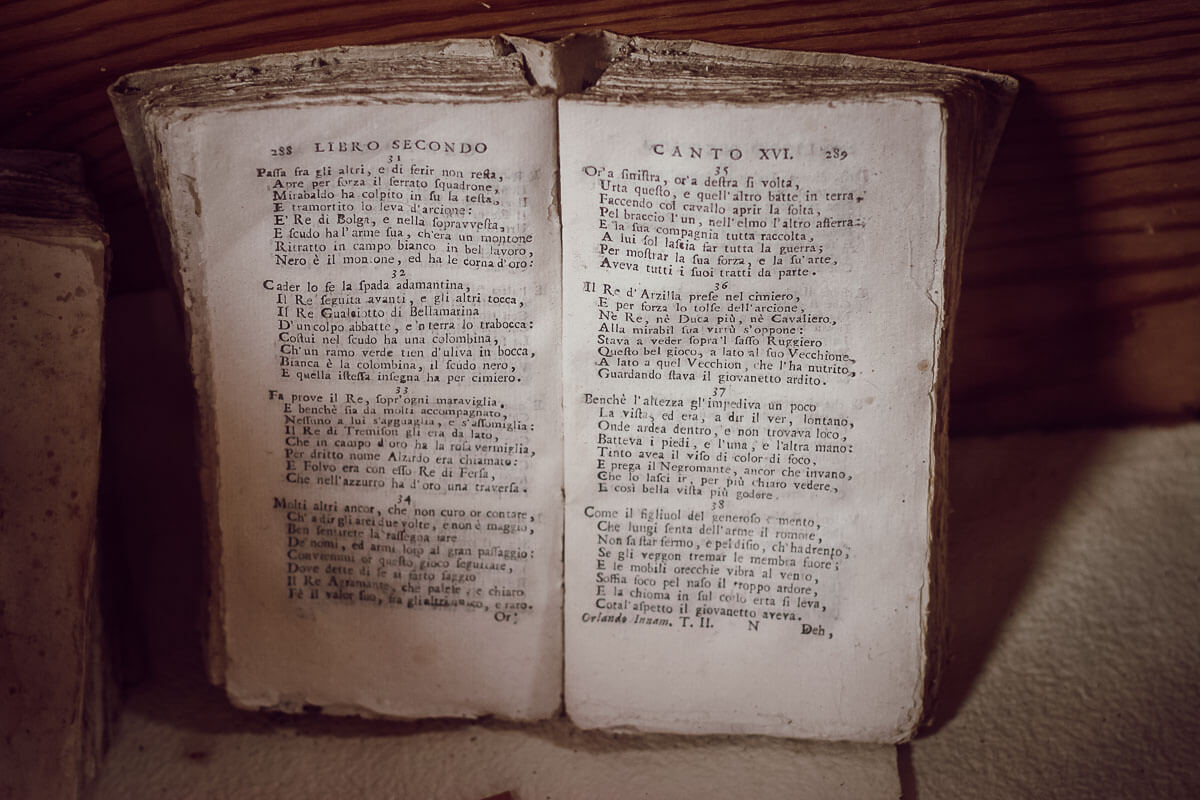 288 LIBRO SECONDO
31
Paſſa fra gli altri, e di ferir non reſta,
Apre per forza il ferrato ſquadrone,
Mirabaldo ha colpito in ſu la teſta,
E tramortito lo leva d'arcione:
E' Re di Bolga, e nella ſopravveſta,
E ſcudo ha l'arme ſua, ch'era un montone
Ritratto in campo bianco in bel lavoro,
Nero è il montone, ed ha le corna d'oro:
32
Cader lo fe la ſpada adamantina,
Il Re ſeguita avanti, e gli altri tocca,
Il Re Gualciotto di Bellamarina
D'un colpo abbatte, e'n terra lo trabocca:
Coſtui nel ſcudo ha una colombina,
Ch'un ramo verde tien d'uliva in bocca,
Bianca è la colombina, il ſcudo nero,
E quella iſteſſa inſegna ha per cimiero.
33
Fa prove il Re, ſopr'ogni maraviglia.
E benchè ſia da molti accompagnato,
Neſſuno a lui s'agguaglia, e s'aſſomiglia:
Il Re di Tremiſon gli era da lato,
Che in campo d'oro ha la roſa vermiglia,
Per dritto nome Alzirdo era chiamato:
E Folvo era con eſſo Re di Ferſa,
Che nell'azzurro ha d'oro una traverſa.
34
Molti altri ancor, che non curo or contare,
Ch'a dir gli arei due volte, e non è maggio,
Ben ſentirete la raſſegna fare
De' nomi, ed armi loro al gran paſſaggio:
Convienmi or queſto gioco ſeguitare,
Dove dette di ſe sì fatto ſaggio
Il Re Agramante, che paleſe, e chiaro
Fè il valor ſuo, fra gli altri unico, e raro.
Or'
CANTO XVI. 289
35
Or'a ſiniſtra, or'a deſtra ſi volta,
Urta queſto, e quell'altro batte in terra,
Faccendo col cavallo aprir la folta,
Pel braccio l'un, nell'elmo l'altro afferra:
E la ſua compagnia tutta raccolta,
A lui ſol laſcia far tutta la guerra;
Per moſtrar la ſua forza, e la ſu'arte,
Aveva tutti i ſuoi tratti da parte.
36
Il Re d'Arzilla preſe nel cimiero,
E per forza lo tolſe dell'arcione,
Nè Re, nè Duca più, nè Cavaliero,
Alla mirabil ſua virtù s'oppone:
Stava a veder ſopra'l ſaſſo Ruggiero
Queſto bel gioco, a lato al ſuo Vecchione,
A lato a quel Vecchion, che l'ha nutrito,
Guardando ſtava il giovanetto ardito.
37
Benchè l'altezza gl'impediva un poco
La viſta, ed era, a dir il ver, lontano,
Onde ardea dentro, e non trovava loco,
Batteva i piedi, e l'una, e l'altra mano:
Tinto avea il viſo di color di foco,
E prega il Negromante, ancor che invano,
Che lo laſci ir, per più chiaro vedere,
E così bella viſta più godere.
38
Come il figliuol del generoſo mento,
Che lungi ſenta dell'arme il romore,
Non ſa ſtar fermo, e pel diſio, ch'ha drento,
Se gli veggon tremar le membra fuore;
E le mobili orecchie vibra al vento,
Soffia foco pel naſo il troppo ardore,
E la chioma in ſul collo erta ſi leva,
Cotal'aſpetto il giovanetto aveva.
Orlando Innam. T. II. N Deh,